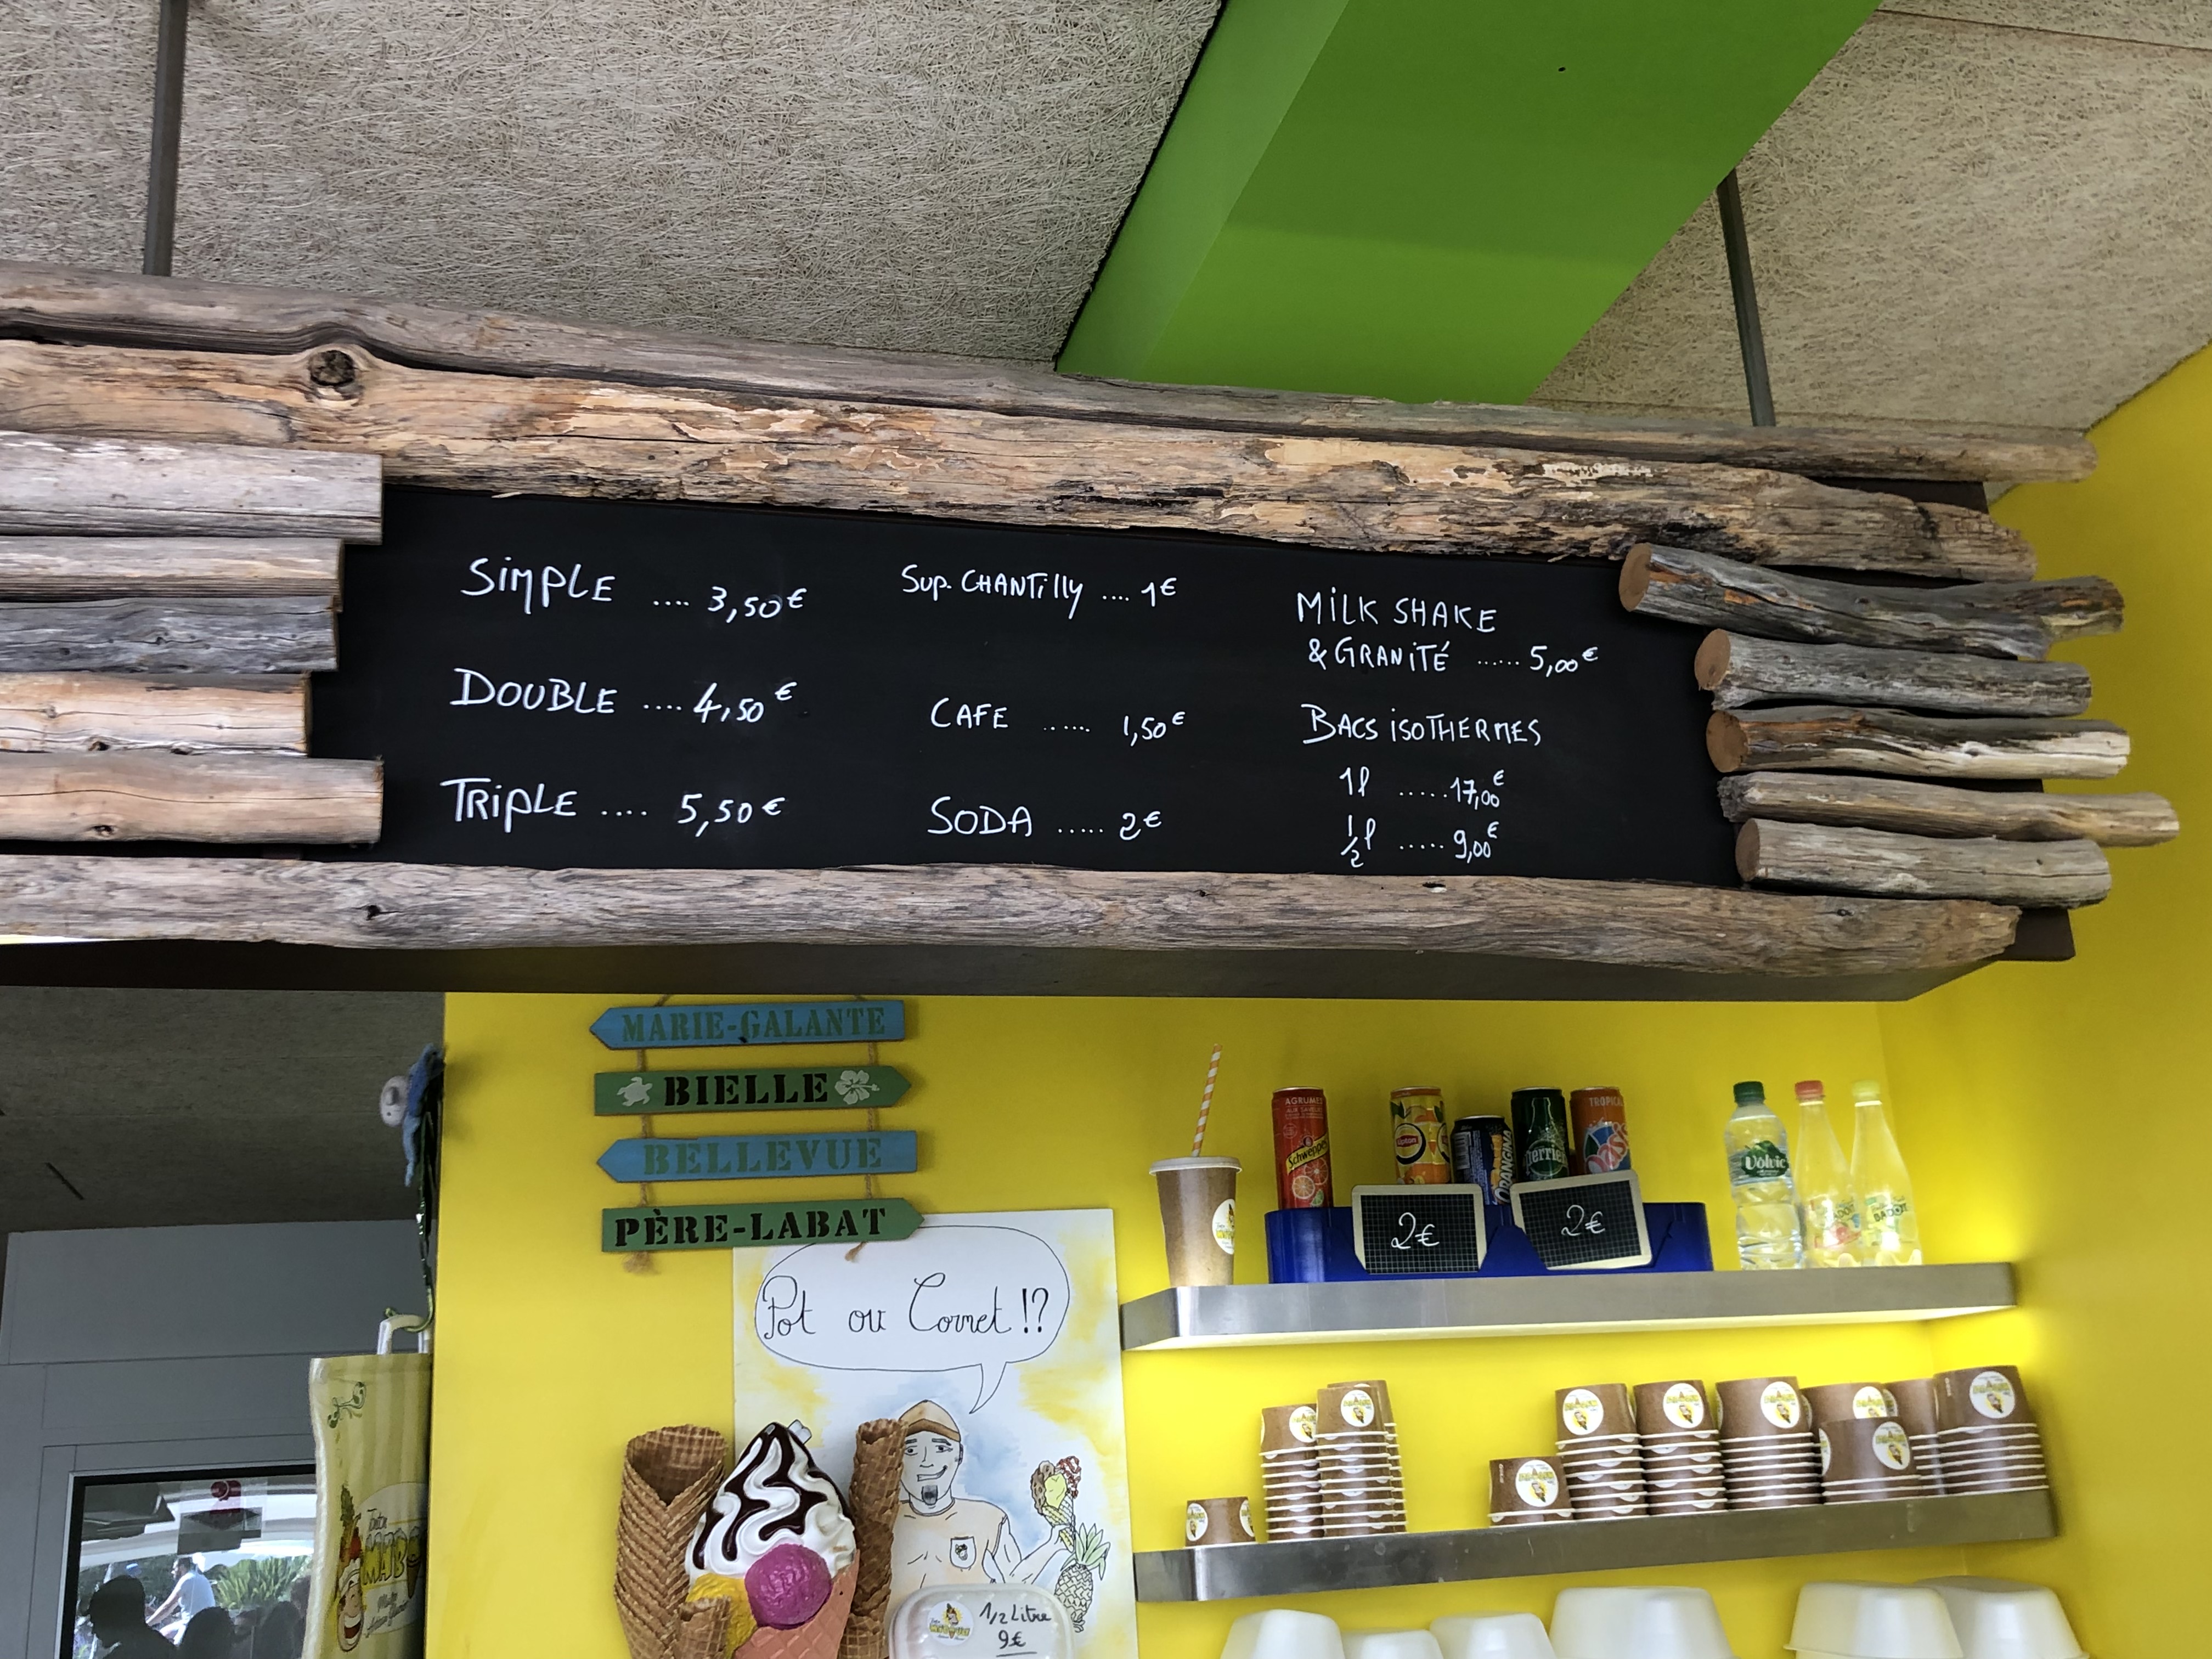 SIMPLE .... 3,50€
DOUBLE .... 4,50€
TRIPLE .... 5,50€
Sup. CHANTILLY .... 1€
CAFE ...... 1,50€
SODA ..... 2€
MILK SHAKE
& GRANITÉ ...... 5,00€
BACS ISOTHERMES
1l ..... 17,00€
1/2l ..... 9,00€
MARIE-GALANTE
BIELLE
BELLEVUE
PÈRE-LABAT
Pot ou Cornet !?
AGRUMES
Schweppes
Lipton
ORANGINA
perrier
TROPICAL
Volvic
BADOIT
2€
2€
1/2 Litre
9€